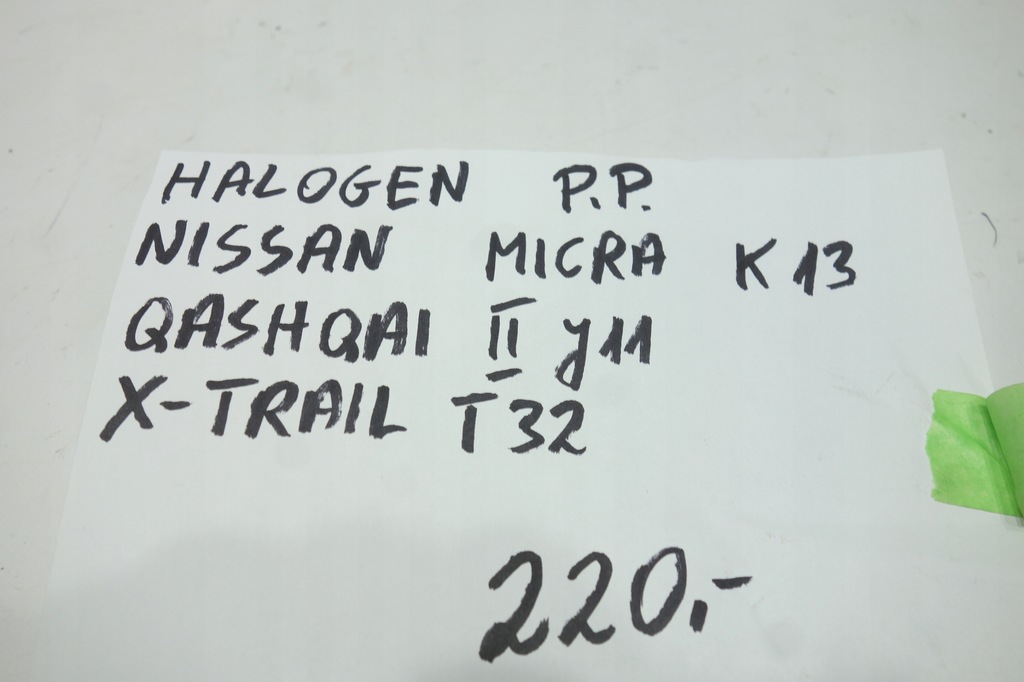 HALOGEN P.P.
NISSAN MICRA K13
QASHQAI II y11
X-TRAIL T32
220.-